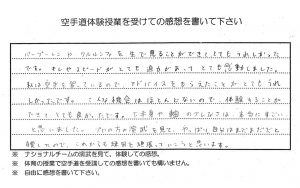 空手道体験授業を受けての感想を書いて下さい
を生で見ることができて、とてもうれしかった
です。キレやスピードがとても迫力があってとても感動しました。
私は空手を習っているので、アドバイスをもらえたことがとてもうれ
しかったです。こんな機会はほとんどないので、体験することが
できてとても良かったです。下半身や軸のブレなさは本当にすごい
と思いました。プロの方の演武を見て、やっぱり自分はまだまだだと
感じたので、これからも練習を頑張っていこうと思います。
※ ナショナルチームの演武を見て、体験しての感想。
※ 体育の授業で空手道を受講しての感想を書いても構いません。
※ 自由に感想を書いて下さい。